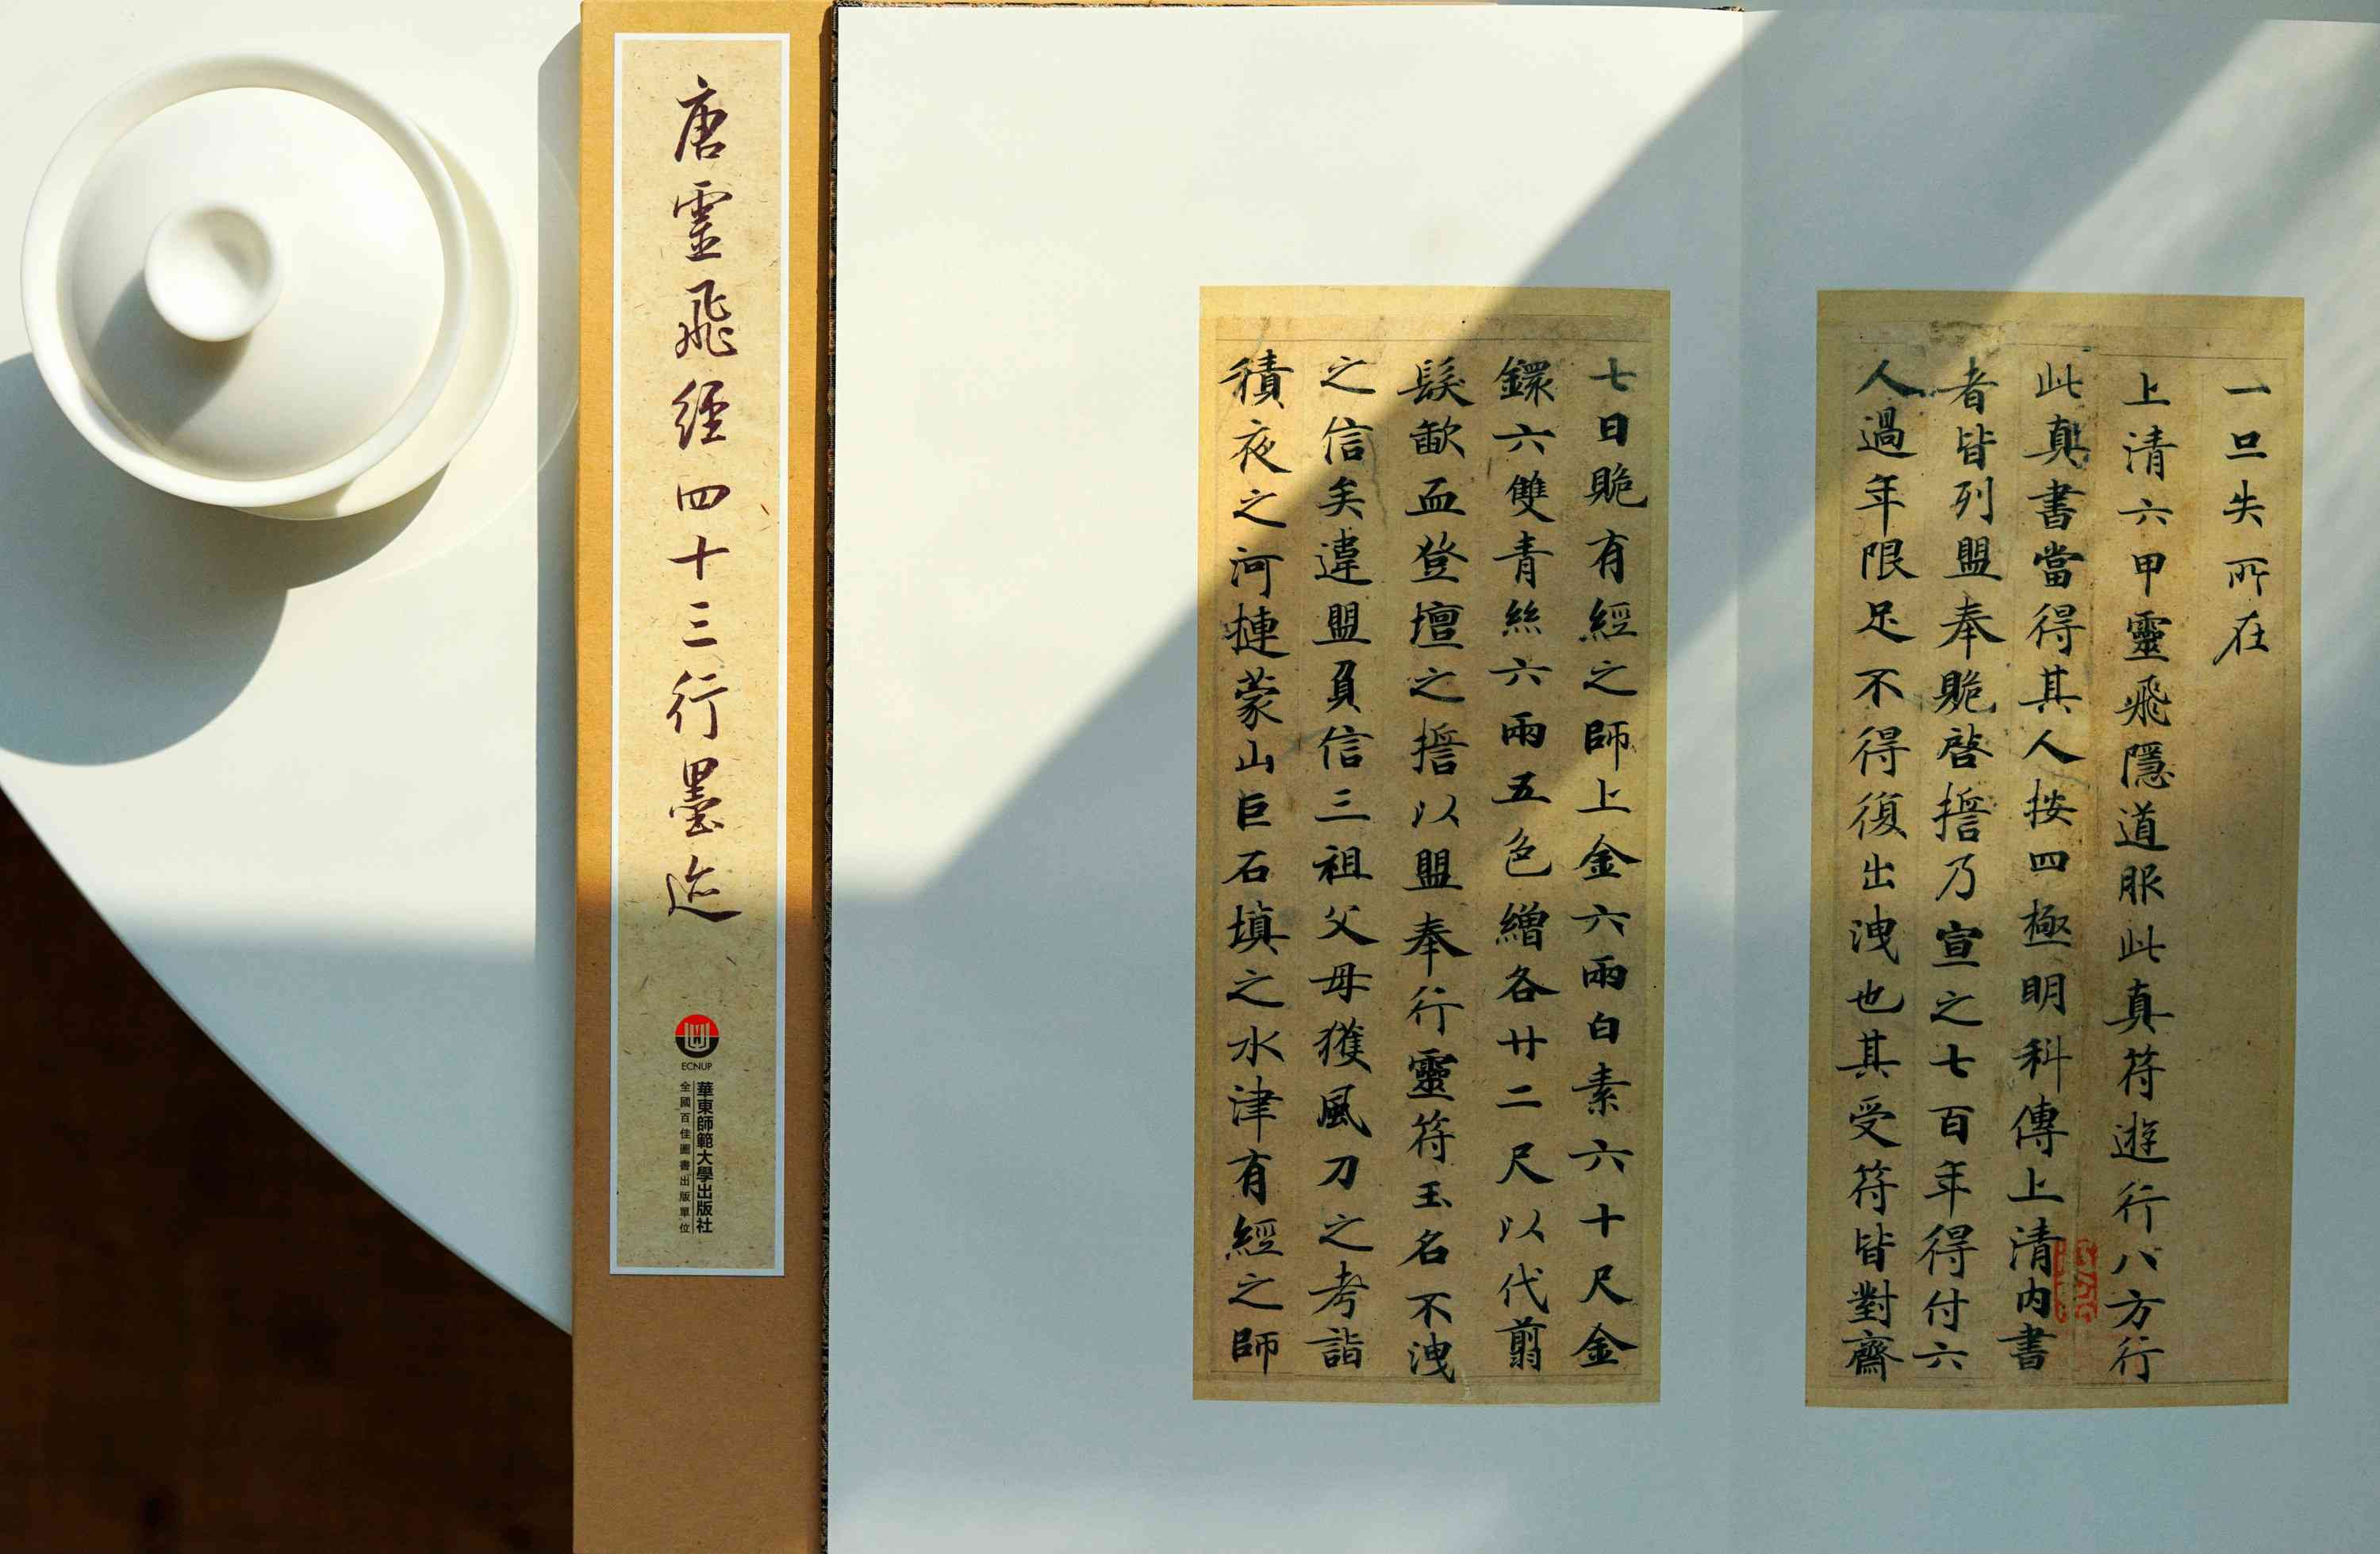 唐靈飛經四十三行墨迹
ECNUP
華東師範大學出版社
全國百佳圖書出版單位
一旦失所在
上清六甲靈飛隱道服此真符遊行八方行
此真書當得其人按四極明科傳上清內書
者皆列盟奉贶啓擔乃宣之七百年得付六
人過年限足不得復出洩也其受符皆對齋
七日贶有經之師上金六兩白素六十尺金
鐶六雙青絲六兩五色繒各廿二尺以代翦
髮歃血登壇之擔以盟奉行靈符玉名不洩
之信矣違盟負信三祖父母獲風刀之考詣
積夜之河摙蒙山巨石填之水津有經之師